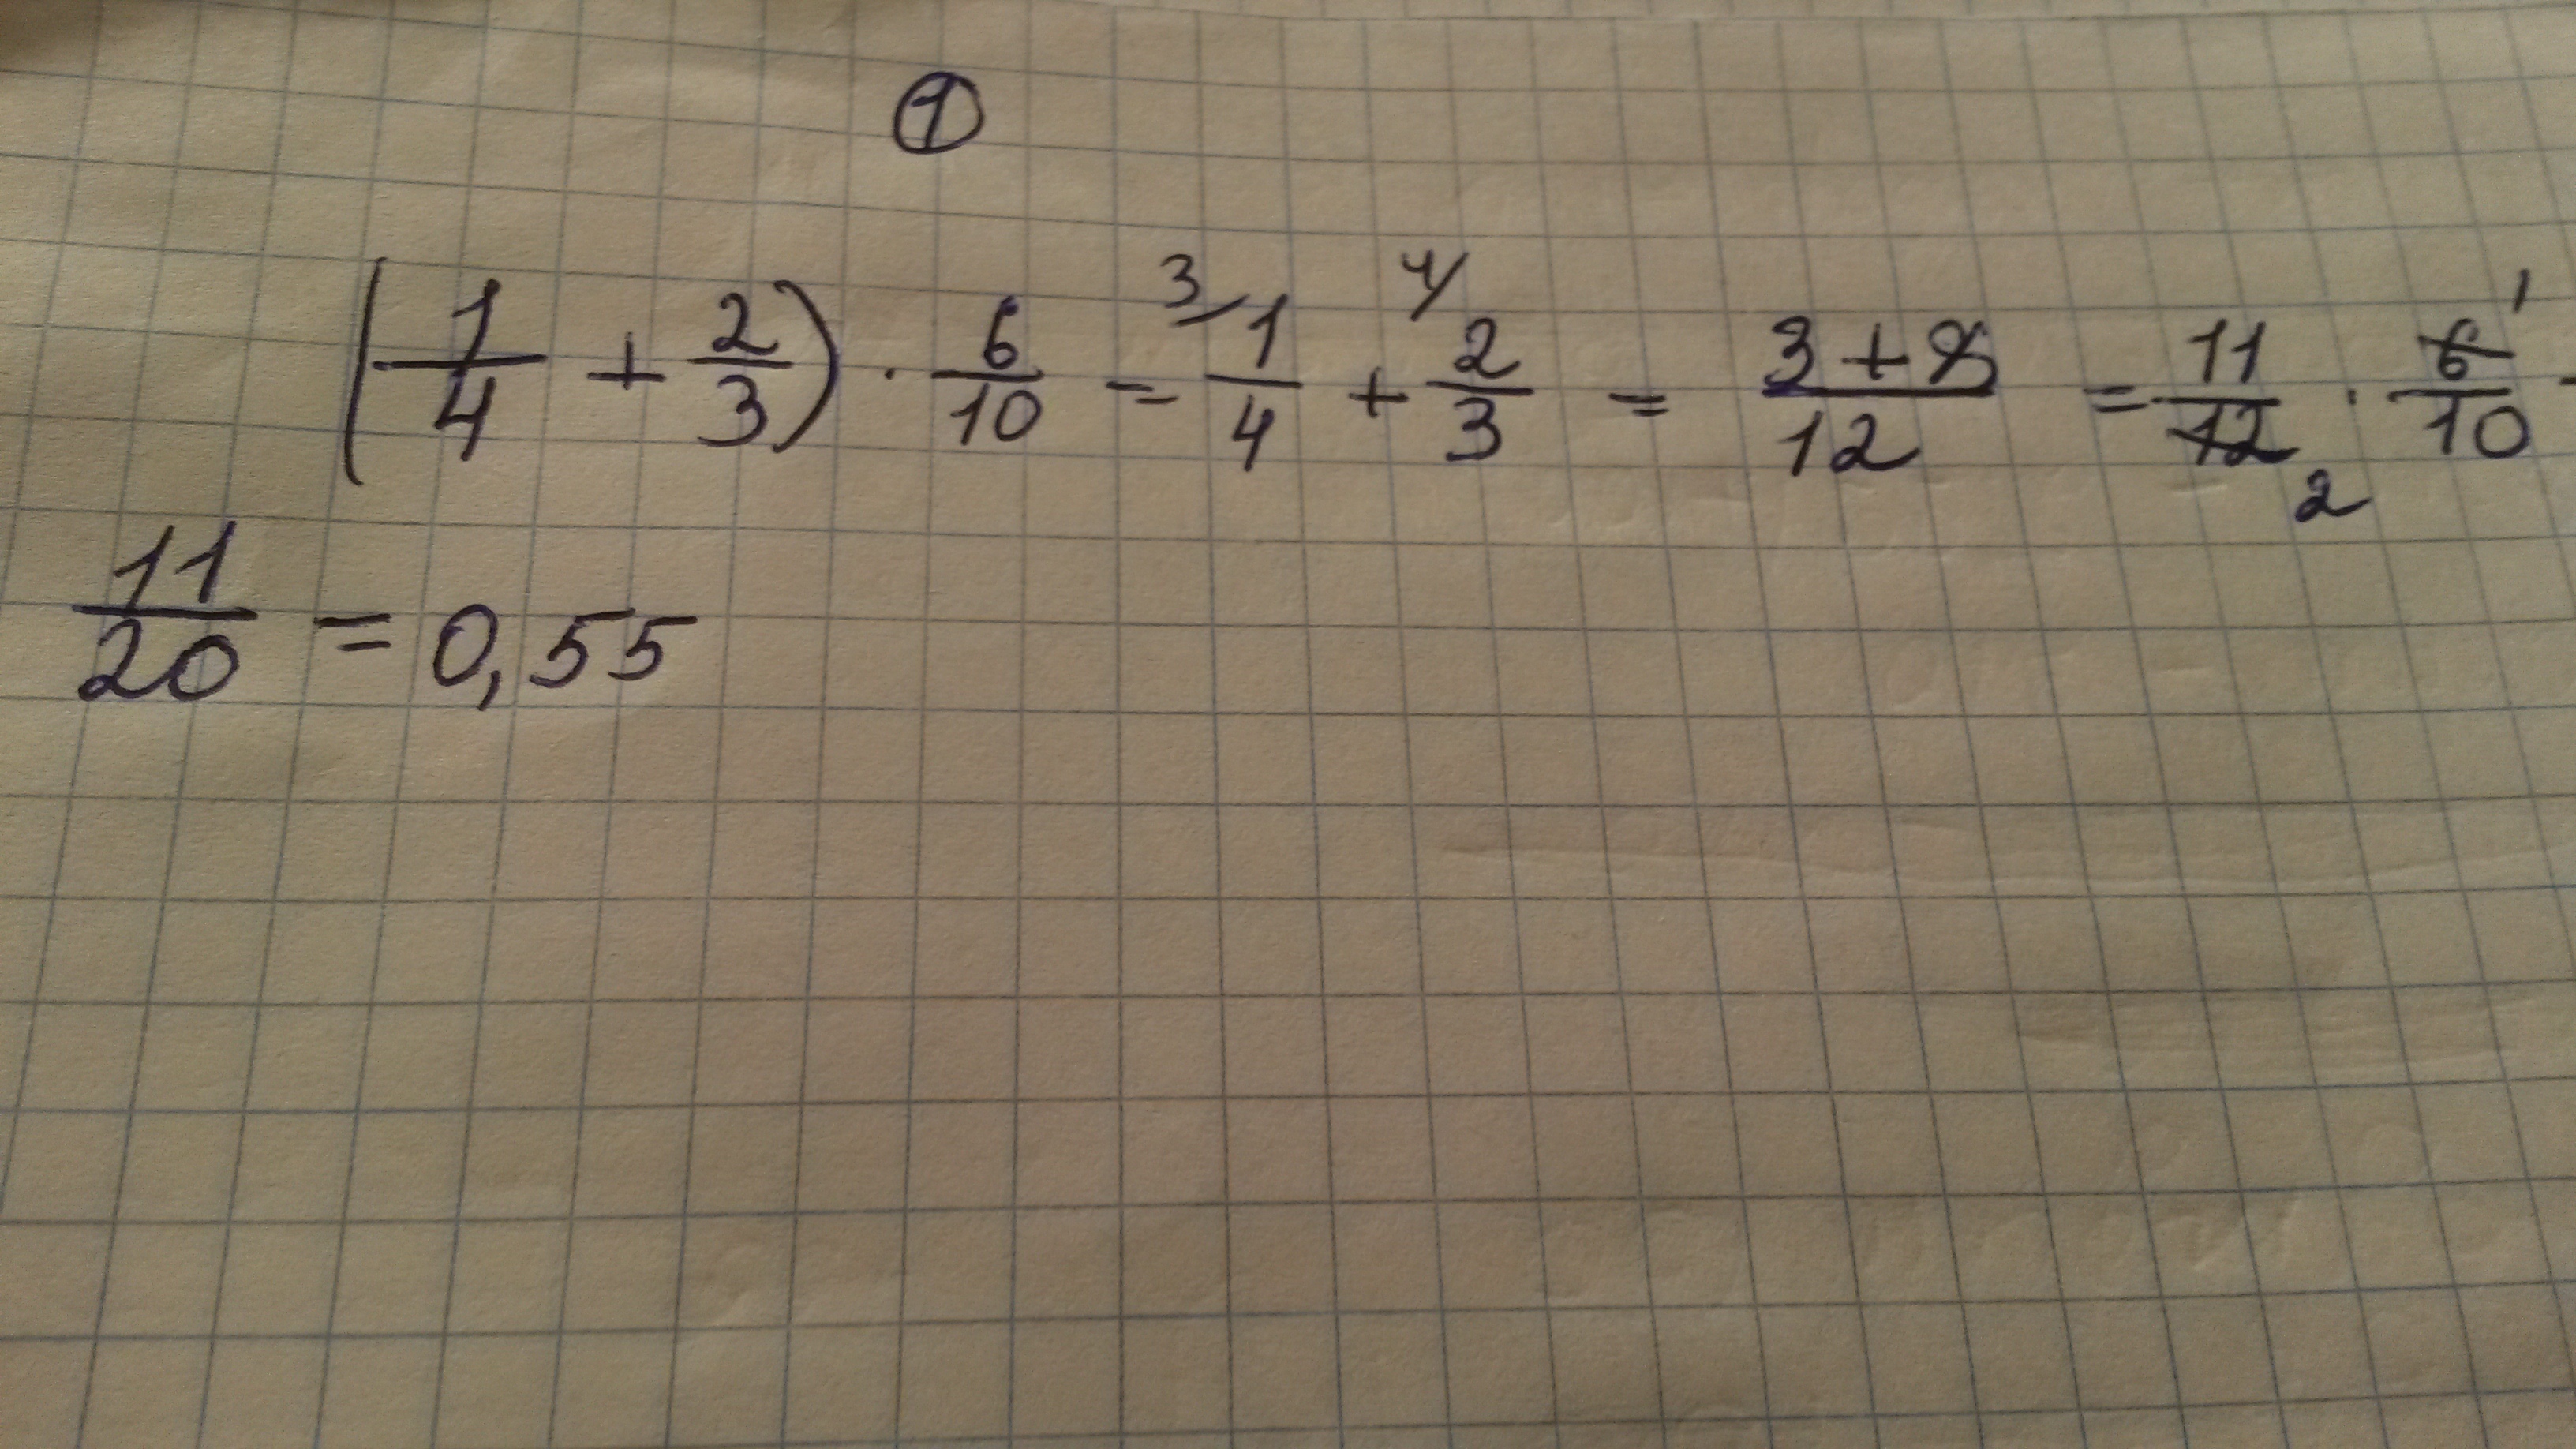 1
(1/4 + 2/3) · 6/10 = 3/ 1/4 + 4/ 2/3 = (3+8)/12 = 11/12 2 · 6/10 1 =
11/20 = 0,55